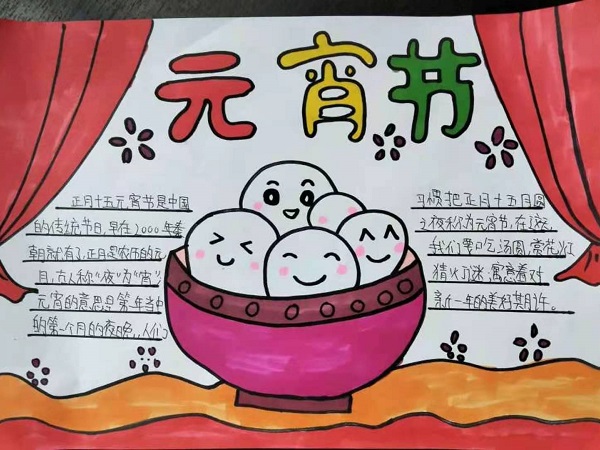 元宵节
正月十五元宵节是中国
的传统节日,早在2000年秦
朝就有了,正月是农历的元
月,古人称"夜"为"宵",
元宵的意思是第年当中
的第一个月的夜晚,人们
习惯把正月十五月圆
之夜称为元宵节,在这
我们要吃汤圆,赏花灯
猜灯谜,寓意着对
新一年的美好期许。